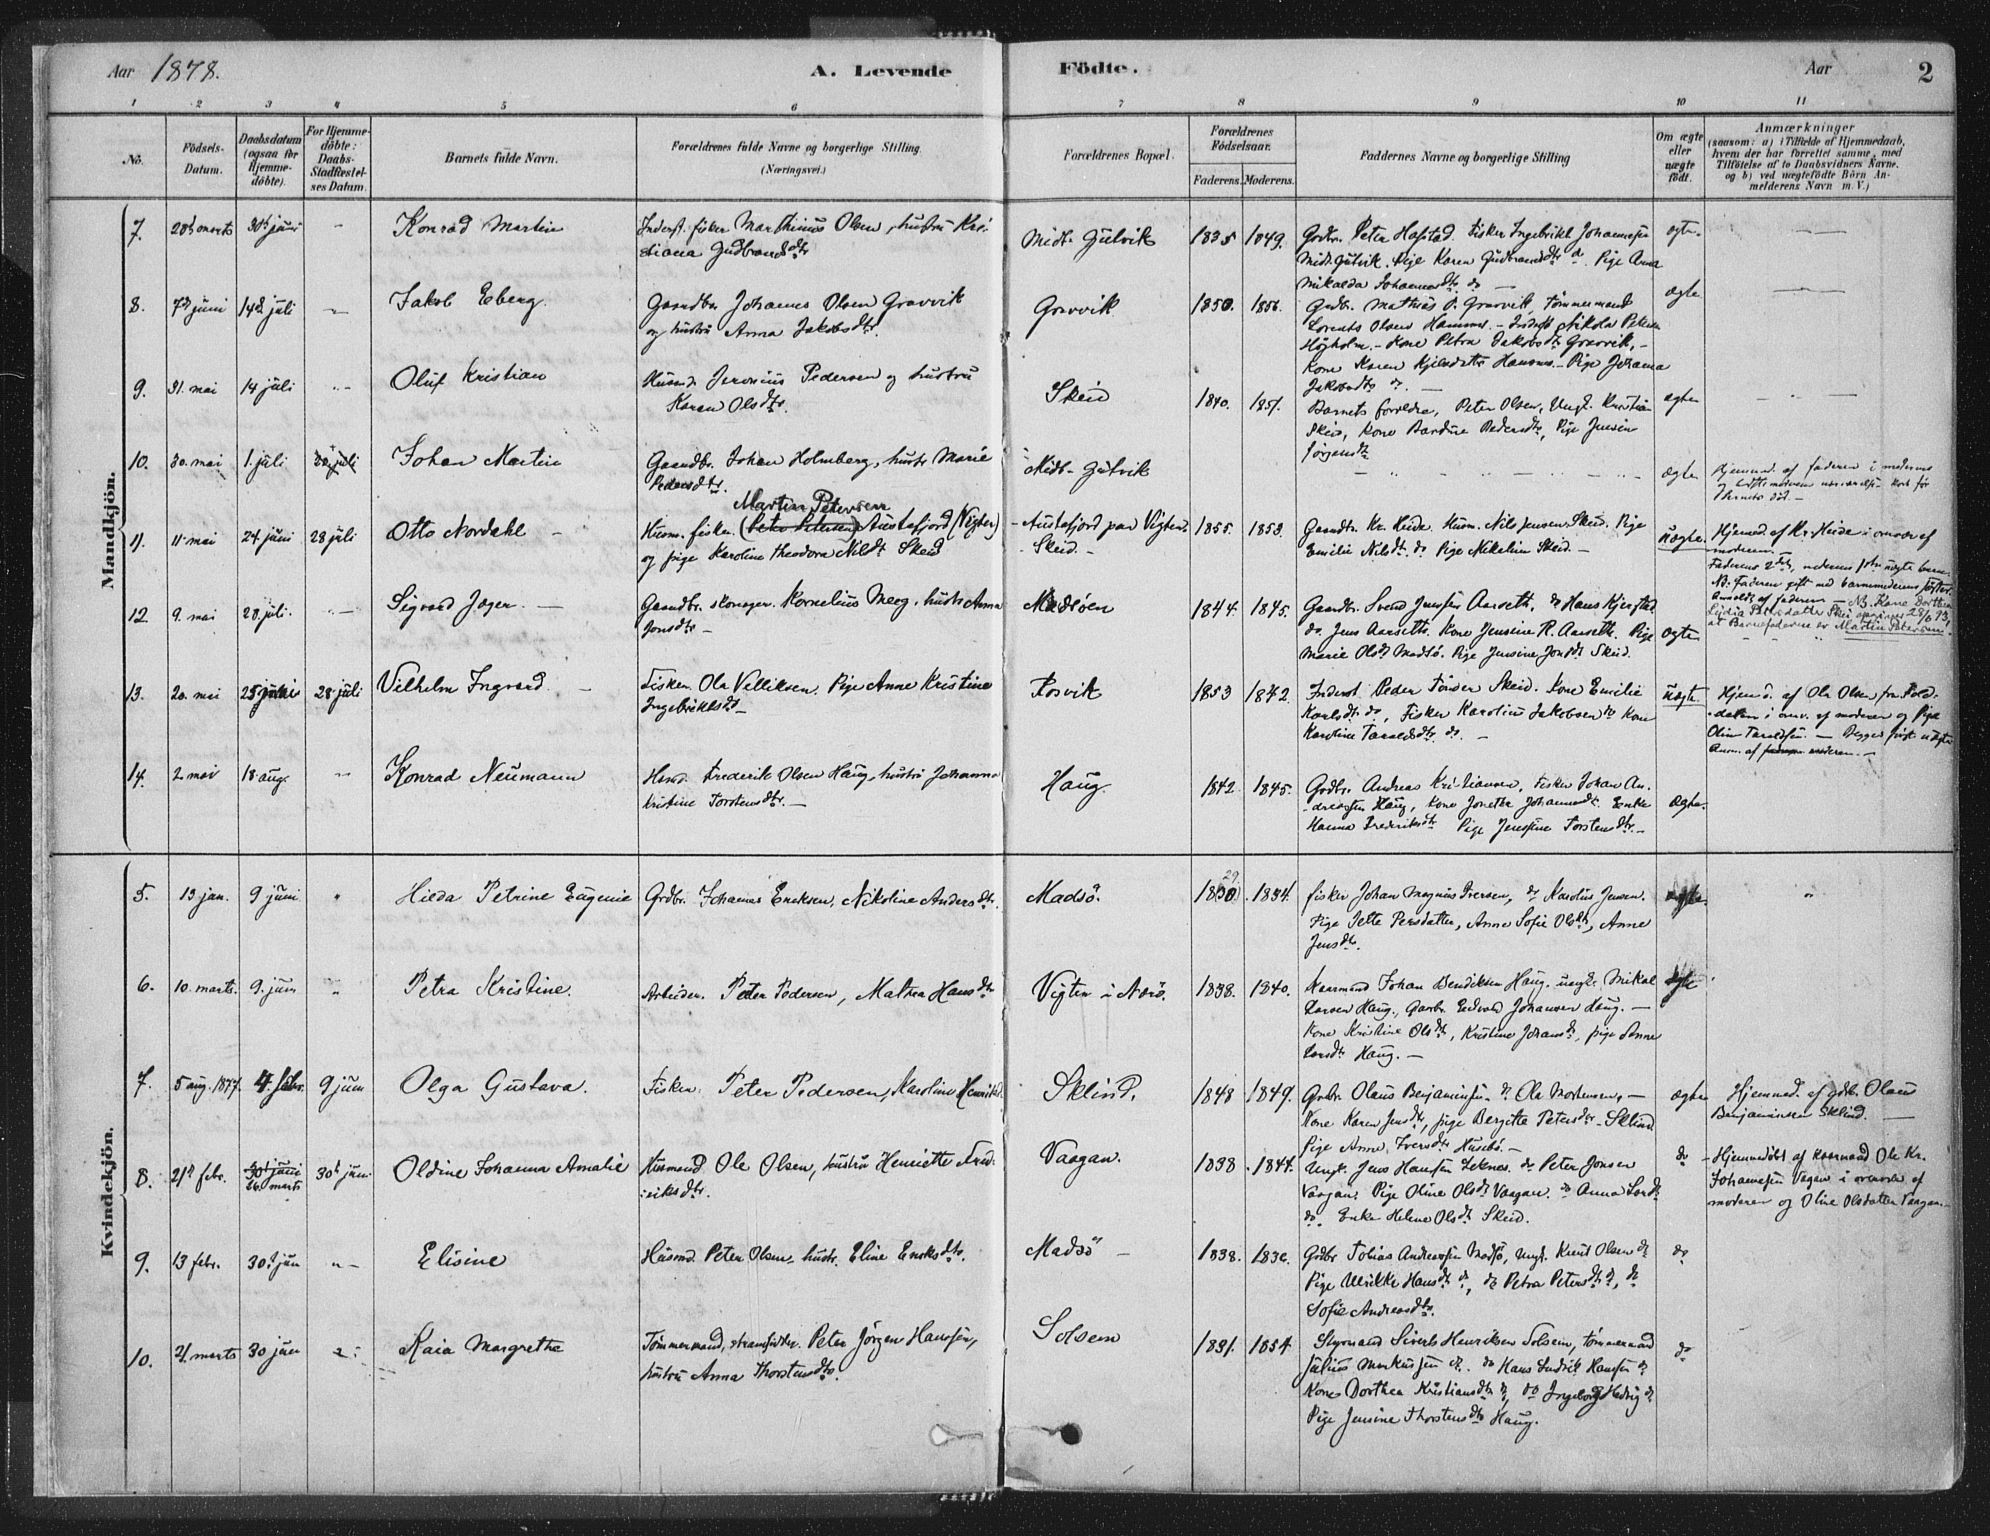 Aar 1878.
A. Levende
Födte.
Aar
2
1 2 3 4 5 6 7 8 9 10 11
No.
Födsels-Datum.
Daabsdatum (ogsaa for Hjemme-döbte).
For Hjemme-döbte: Daabs-Stadfæstel-ses Datum.
Barnets fulde Navn.
Forældrenes fulde Navne og borgerlige Stilling. (Næringsvei.)
Forældrenes Bopæl.
Forældrenes Födselsaar.
Faderens. Moderens.
Faddernes Navne og borgerlige Stilling
Om ægte eller uægte födt.
Anmærkninger
(saasom: a) i Tilfælde af Hjemmedaab,
hvem der har forrettet samme, med
Tilföielse af to Daabsvidners Navne.
og b) ved uægtefödte Börn An-
melderens Navn m. V.)
Mandkjön.
7. 28de marts 30te juni Konrad Martin
fisker Marthinus Olsen, hustru Kri-
stiana Gudbrandsdtr
Midt. Gutvik 1835 1849.
Grdbr. Peter Hafstad. Fisker Ingebrikt Johannesen
Midt. Gutvik. Pige Karen Gudbrandsdtr do. Pige Anna
Mikalda Johannesdtr do —
ægte.
8. 7de juni 14de juli Jakob Eberg.
Gaardbr. Johannes Olsen Gravvik
og hustru Anna Jakobsdtr.
Gravvik 1850. 1856.
Grdbr. Mathias P. Gravvik, Tømmermand
Lorents Olsen Hammer. — Nikolai Petersen
Højholm. — Kone Petra Jakobsdtr Gravvik, —
Kone Karen Hammer — Pige Johanna
Jakobsdtr do. —
ægte
9. 31. mai 14 juli Oluf Kristian
Husmd. Jeronius Pedersen og hustru
Karen Olsdtr.
Skeid 1840. 1851.
Barnets forældre, Peter Olsen, Ungk. Kristian
Skeid, Kone Pedersdtr, Pige Jensine
Jörgensdtr
ægte
10. 30. mai 1. juli 28 juli Johan Martin
Gaardbr. Johan Holmberg, hustr. Marie
Pedersdtr.
Midt. Gutvik
ægte
Hjemmed. af faderen i moderens
11. 11 mai 24. juni 28 juli Otto Nordahl —
Martin Petersen
Husm. fisker (Peter Petersen) Austafjord (Vigten)
og pige Karoline Theodora Nilsdt Skeid
Austafjord paa Vigten.
Skeid. —
1855. 1853.
Gaardbr. Kr. Heide. Husm. Nils Jensen Skeid. Pige
Emilie Nilsdt. do Pige Nikoline Skeid. —
uægte.
Hjemmed. af Kr. Heide i overvær af
moderen.
Faderens 2det, moderens 1ste uægte barn.
NB. Faderen gift med barnemoderens søster.
Anmeldt af faderen — NB. Kone Dorthea
at Barnefaderen er Martin Petersen.
12 9. mai 28 juli. Sigvard Jæger. —
Gaardbr. Kornelius Meog, hustr. Anna
Jonsdtr —
Madsöen 1844. 1845.
Gaardbr. Svend Jensen Aarseth, do Hans Kjerstad
do. Jens Aarseth. Kone Jensine R. Aarseth. Pige
Marie Olsdt Madsö. Pige Jensine Jonsdt Skeid.
ægte
13. 20. mai 25 juni 28 juli Vilhelm Ingvard. —
Fisker Ole Velliksen. Pige Anne Kristine
Ingebriktsdt —
Rosvik 1853 1842.
Inderst Peder Skeid. Kone Emilie
Karlsdt. do, Fisker Karolius Jakobsen do Kone
Karoline Taraldsdtr. do. —
uægte.
Hjemmed. af Ole Olsen fra
i overv. af moderen og Pige
Oline Taraldsen. —
Anm. af moderen. —
14. 2 mai 18 aug. Konrad Neumann
Husmd. Frederik Olsen Haug, hustru Johanna
Kristine Torstensdtr. —
Haug. 1842 1845.
Grdbr. Andreas Kristiansen, Fisker Johan An-
dreassen Haug, Kone Jonetta Johannesdt. Enke
Hanna Frederiksdt Pige Jensine Torstensdtr. —
ægte.
Kvindekjön.
5. 13 jan. 9 juni Hilda Petrine Eugenie
Grdbr. Johannes Eriksen, Nikoline Andersdtr.
Madsö. 29. 1830 1834.
fisker Johan Magnus Iversen, do Karolus Jensen.
Pige Jette Persdatter, Anne Sofie Olsdt, Anne
Jensdtr.
ægte.
6. 10. marts. 9. juni Petra Kristine.
Arbeider. Peter Pedersen, Mathea Hansdtr
Vigten i Nærö. 1838. 1840.
Kaarmand Johan Bendiksen Haug. ungk. Mikal
Larsen Haug, Gaardbr. Edvard Johansen Haug. —
Kone Kristine Olsdt, Kristine Johansdt, pige Anne
Larsdt. Haug. —
ægte
7. 5 aug. 1877. 4. febr. 9 juni Olga Gustava.
Fisker. Peter Pedersen, Karoline Henriksd.
Sklind. 1848 1849.
Grdbr. Olaus Benjaminsen do Ole Mortensen, —
Kone Karen Jensdt, pige Bergitte Petersdtr — Sklind
Pige Anne Iversdtr Husebö. —
ægte
Hjemmed. af gdbr. Olaus
Benjaminsen Sklind. —
8. 21de febr. 30te juni 26. marts 30te juni Oldine Johanna Amalie
Husmand Ole Olsen, hustru Henriette Fred-
riksdtr.
Vaagan. 1838 1844.
Ungk. Jens Hansen Leknes. do Peter Jonsen
Vaagan. Pige Oline Olsdt Vaagan. do Anna Larsdt
do. Enke Helene Olsdt Skeid.
do
Hjemmedöbt af Kaarmand Ole Kr.
Johannesen Vaagan i overvær af
moderen og Oline Olsdatter Vaagan. —
9. 13 febr. 30te jun Elisine
Husmd. Peter Olsen, hustr. Eline Eriksdtr.
Madsö — 1838. 1836.
Grdbr. Tobias Andreassen Madsö, ungk. Knut Olsen do
Pige Ulrikke Hansdt do, do Petra Petersdt do, do
Sofie Andreasdtr.
do
10. 21. marts 30 juni Kaia Margrethe
Tömmermand, strandsidder. Peter Jörgen Hansen,
hustru Anna Thorstensdtr.
Solsem 1831. 1854
Styrmand Sivert Henriksen Solsem, tömmermand
Julius Markussen do. do Hans Ludvik Hansen do
Kone Dorthea Kristiansdt do, do Ingeborg Hedvig do
Pige Jensine Thorstensdtr Haug.
do